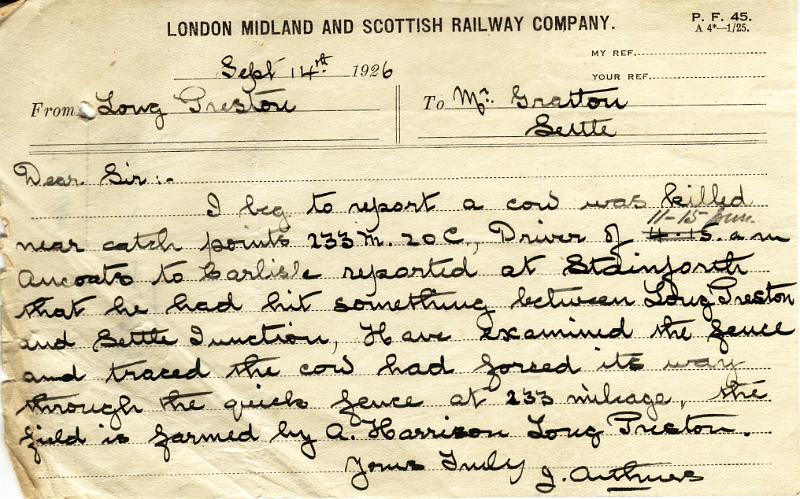 LONDON MIDLAND AND SCOTTISH RAILWAY COMPANY.
P. F. 45.
A 4*—1/25.
MY REF.
Sept 14th 1926
YOUR REF.
From Long Preston
To Mr. Gratton
Settle
Dear Sir:-
I beg to report a cow was killed
11-15 p.m.
near catch points 233 M. 20 C., Driver of 4.15. a.m
Ancoats to Carlisle reported at Stainforth
that he had hit something between Long Preston
and Settle Junction, Have examined the fence
and traced the cow had forsed its way
through the quick fence at 233 mileage, the
field is farmed by A. Harrison Long Preston.
Yours Truly
J. Arthurs